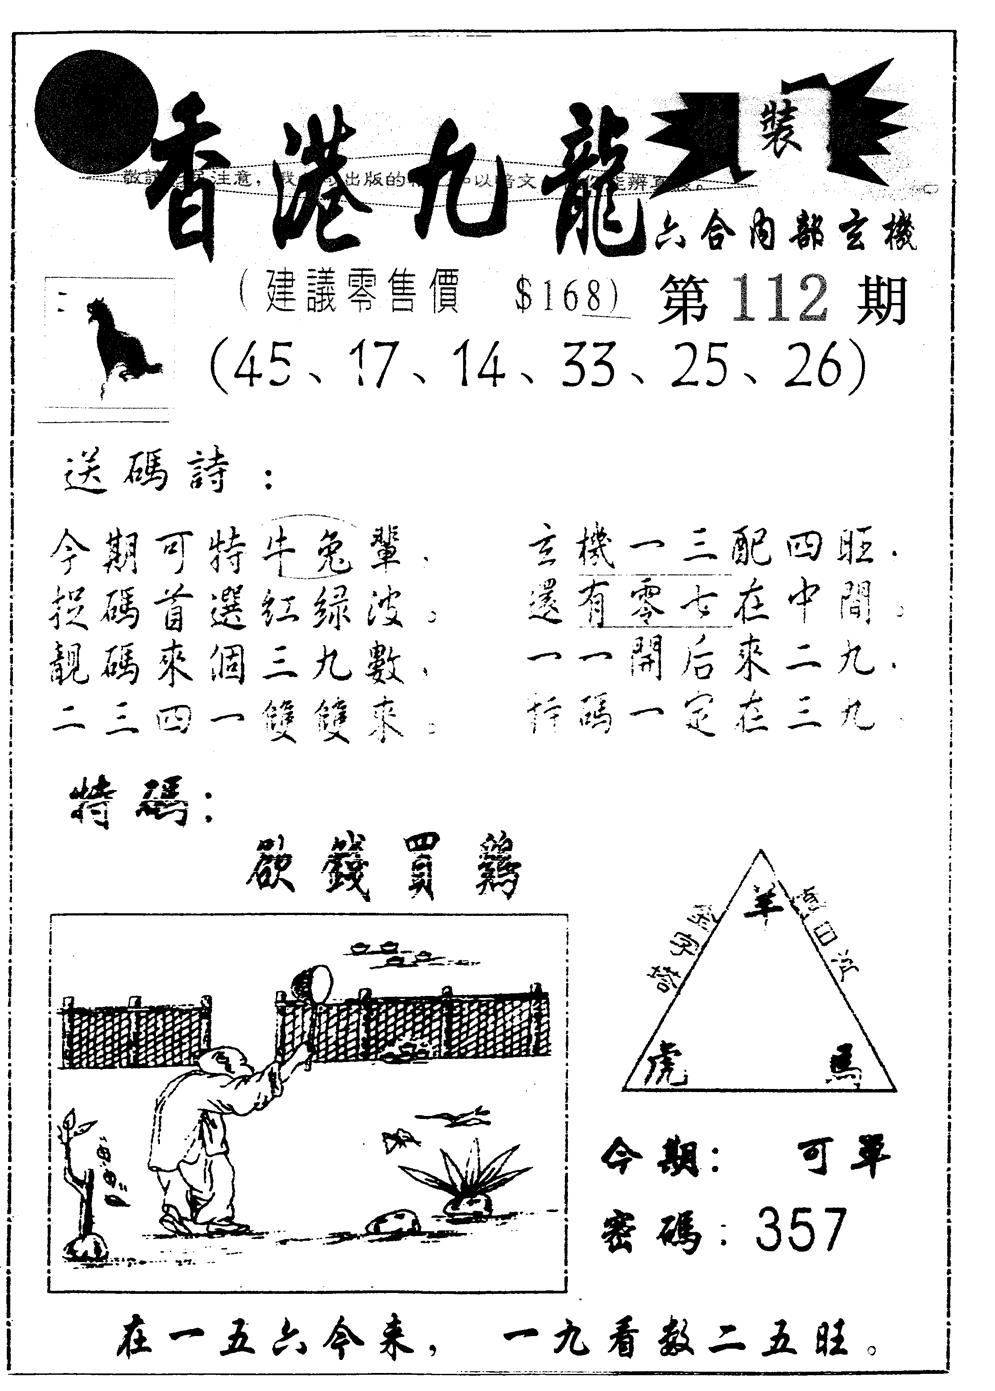 裝
香港九龍
注意，出版的以暗文
六合內部玄機
（建議零售價 $168）
第112期
二
（45、17、14、33、25、26）
送碼詩：
今期可特牛兔輩，
捉碼首選紅绿波。
靚碼來個三九數，
二三四一雙雙來。
玄機一三配四旺，
還有零七在中間。
一一開后來二九，
特碼一定在三九。
特碼：
欲錢買鷄
羊
虎
馬
今期：可單
密碼：357
在一五六今来，一九看数二五旺。